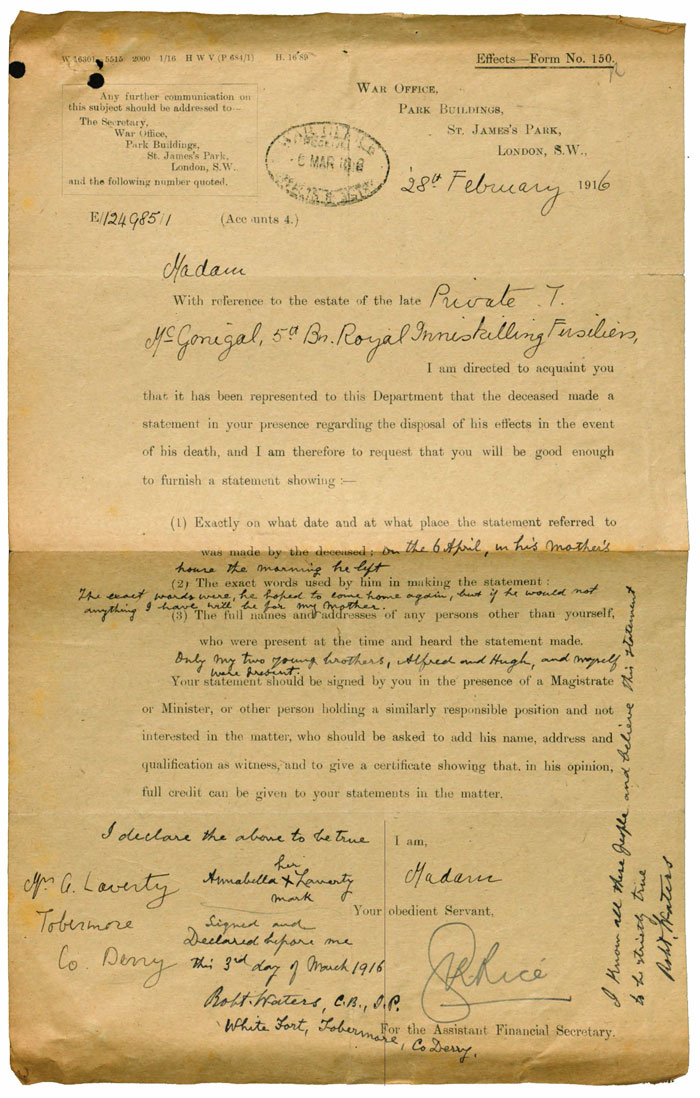 W 16301 5515 2000 1/16 H W V (P 684/1) H. 16/89
Effects—Form No. 150.
Any further communication on
this subject should be addressed to—
The Secretary,
War Office,
Park Buildings,
St. James's Park,
London, S.W.,
and the following number quoted.
War Office,
Park Buildings,
St. James's Park,
London, S.W.,
6 MAR 1916
28th February 1916
E/124985/1 (Accounts 4.)
Madam
With reference to the estate of the late Private T.
McGonigal, 5th Bn. Royal Inniskilling Fusiliers,
I am directed to acquaint you
that it has been represented to this Department that the deceased made a
statement in your presence regarding the disposal of his effects in the event
of his death, and I am therefore to request that you will be good enough
to furnish a statement showing :—
(1) Exactly on what date and at what place the statement referred to
was made by the deceased : on the 6 April, in his Mother's
house the morning he left
(2) The exact words used by him in making the statement :
The exact words were, he hoped to come home again, but if he would not
anything I have will be for my mother.
(3) The full names and addresses of any persons other than yourself,
who were present at the time and heard the statement made.
Only my two young brothers, Alfred and Hugh, and myself
were present.
Your statement should be signed by you in the presence of a Magistrate
or Minister, or other person holding a similarly responsible position and not
interested in the matter, who should be asked to add his name, address and
qualification as witness, and to give a certificate showing that, in his opinion,
full credit can be given to your statements in the matter.
I declare the above to be true
her
Annabella X Laverty
mark
Signed and
Declared before me
this 3rd day of March 1916
Robt. Waters, C.B., J.P.
White Fort, Tobermore, Co Derry.
Mrs A. Laverty
Tobermore
Co. Derry
I am,
Madam
Your obedient Servant,
For the Assistant Financial Secretary.
I know all these people and believe this statement
to be strictly true
Robt. Waters